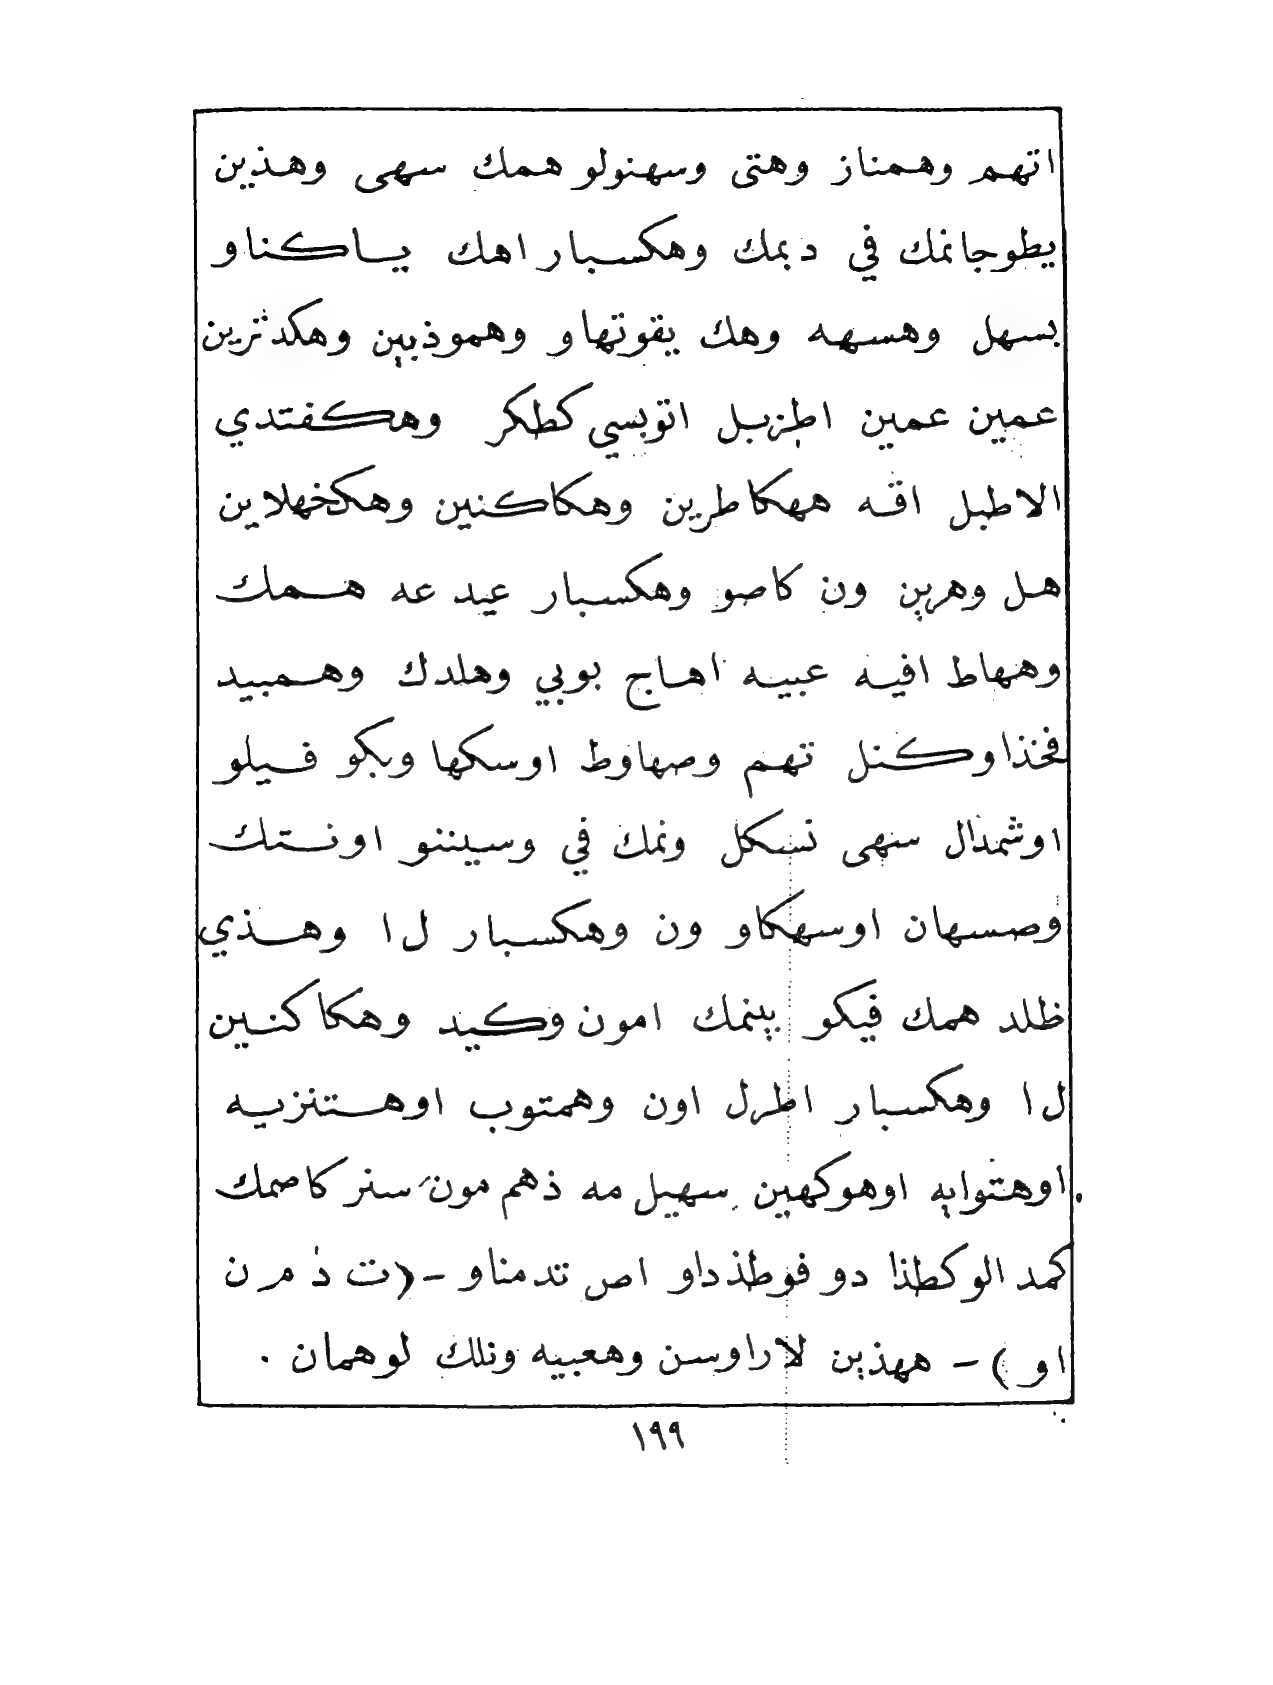 اتهم وهمناز وهتى وسهنولو همك سهى وهذين
يطوجانمك في دبمك وهكسبار اهك يباكناو
بسهل وهسهه وهك يقوتهاو وهموذبين وهكدثرين
عمين عمين اطزبل اتوبسي كطكر وهكفتدي
الاطبل اقه ههكاطرين وهكاكنين وهكخهلاين
هل وهرين ون كاصو وهكسبار عيد عه همك
وههاط افيه عبيه اهاج بوبي وهلدك وهمبيد
فخذاوكنل تهم وصهاوط اوسكها وبكو فيلو
اوشمدال سهى نسكل ونمك في وسيننو اونستك
وصسهان اوسهكاو ون وهكسبار ل ا وهذي
ظلد همك فيكو بينمك امون وكيد وهكاكنين
ل ا وهكسبار اطرل اون وهمتوب اوهتنزيه
اوهتوابه اوهوكهين سهيل مه ذهم مون سنر كاصمك
كمد الوكطذا دو فوطذداو اص تدمناو -(ت ذ م ر ن
او )- ههذين لاراوسن وهعبيه ونلك لوهمان .
١٩٩